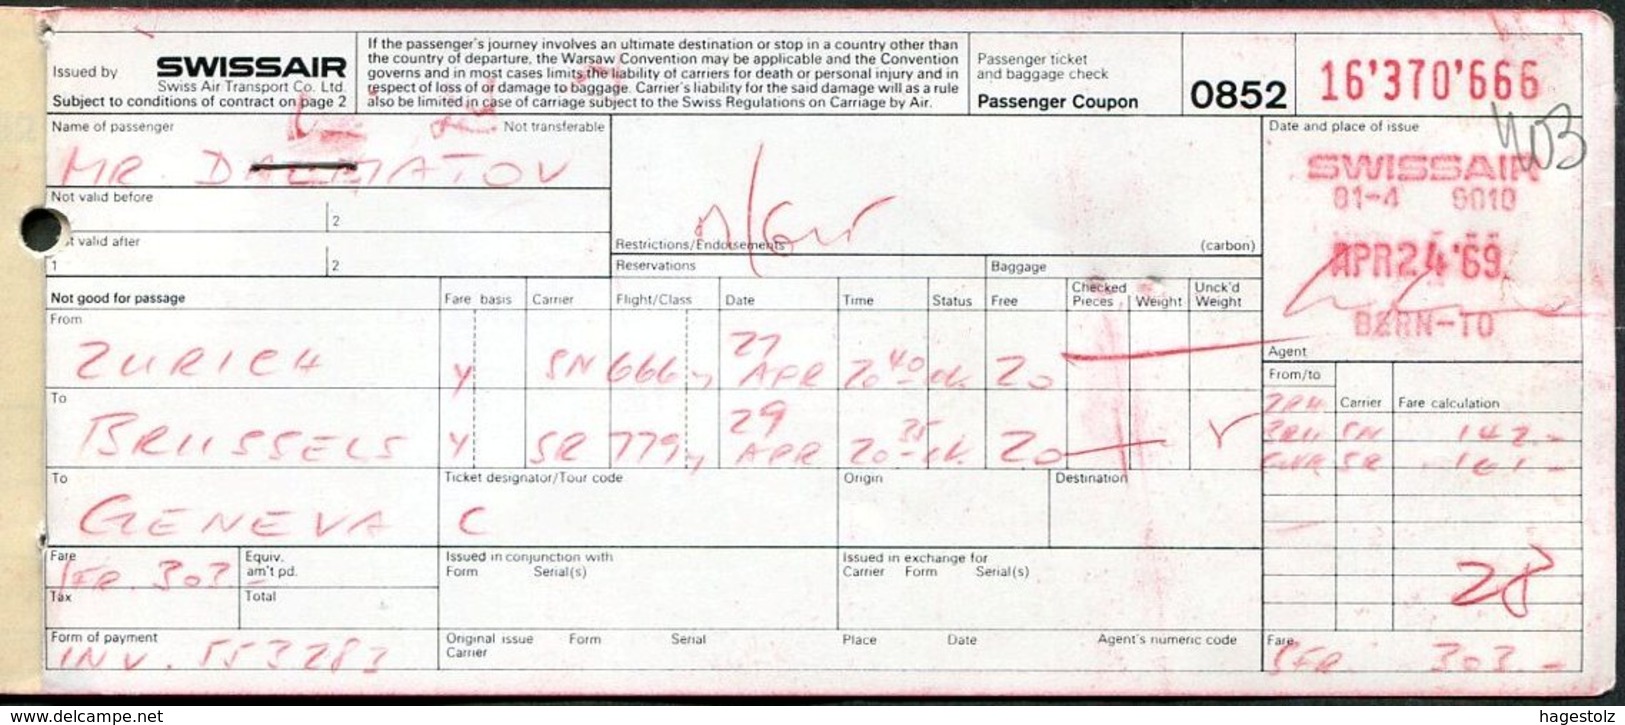 Issued by SWISSAIR
Swiss Air Transport Co. Ltd.
Subject to conditions of contract on page 2
If the passenger's journey involves an ultimate destination or stop in a country other than
the country of departure, the Warsaw Convention may be applicable and the Convention
governs and in most cases limits the liability of carriers for death or personal injury and in
respect of loss of or damage to baggage. Carrier's liability for the said damage will as a rule
also be limited in case of carriage subject to the Swiss Regulations on Carriage by Air.
Passenger ticket
and baggage check
Passenger Coupon
0852
16'370'666
403
Name of passenger Not transferable
MR. DALMATOV
Not valid before
2
Not valid after
1 2
Restrictions/Endorsements (carbon)
Date and place of issue
SWISSAIR
81-4 9010
APR 24 '69
BERN-TO
Agent
Reservations Baggage
Not good for passage Fare basis Carrier Flight/Class Date Time Status Free Checked Pieces Weight Unck'd Weight
From
ZURICH Y SN 666 y 27 APR 20 40 ok 20
To
BRUSSELS Y SR 779 y 29 APR 20 35 ok 20
To
GENEVA
Ticket designator/Tour code
C
Origin Destination
From/to Carrier Fare calculation
ZRH
BRU SN 142.-
GVA SR 161.-
28
Fare
SFR. 303.-
Equiv.
am't pd.
Tax Total
Issued in conjunction with
Form Serial(s)
Issued in exchange for
Carrier Form Serial(s)
Form of payment
INV. 553283
Original issue Form Serial Place Date Agent's numeric code
Carrier
Fare
SFR 303.-
www.delcampe.net
hagestolz